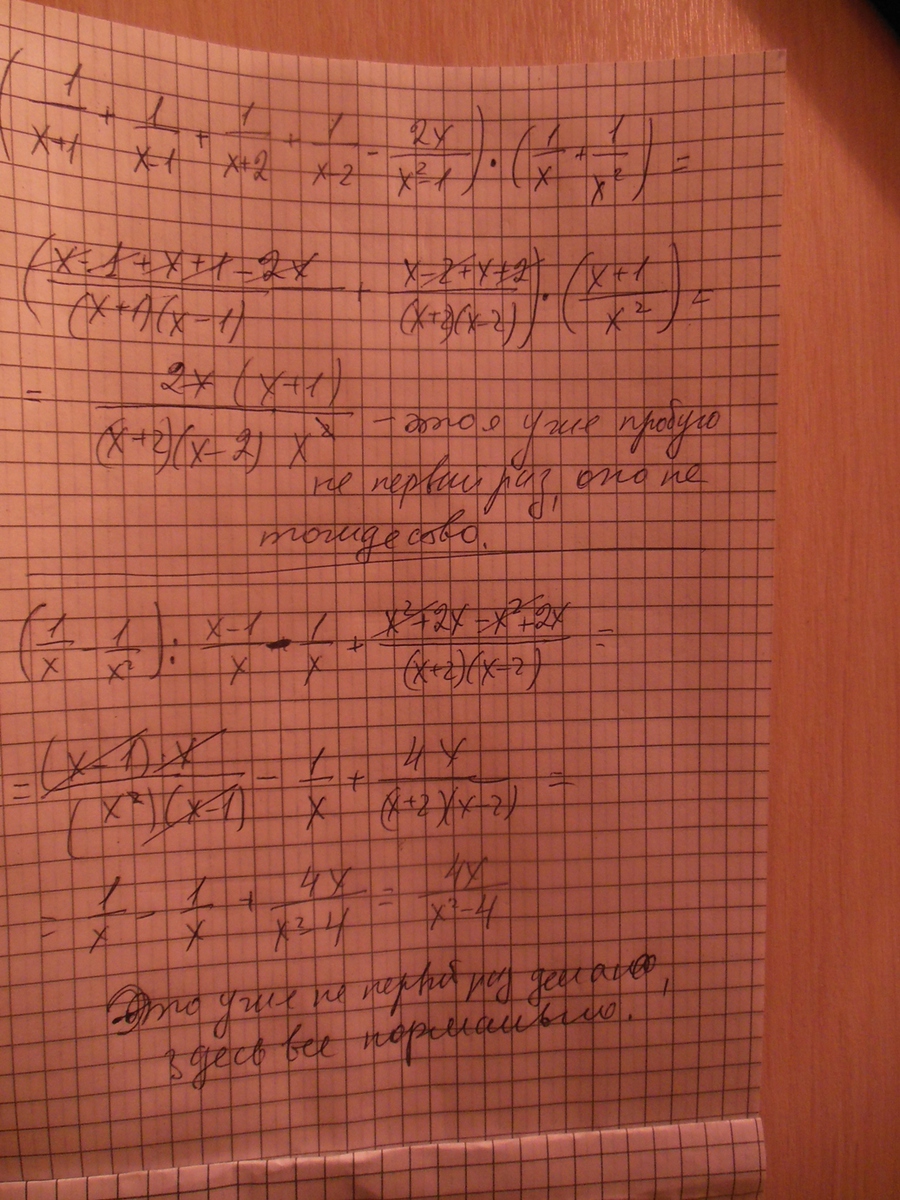 (1/(x+1) + 1/(x-1) + 1/(x+2) + 1/(x-2) - 2x/(x²-1)) · (1/x + 1/x²) =
((x-1+x+1-2x)/((x+1)(x-1)) + (x-2+x+2)/((x+2)(x-2))) · ((x+1)/x²) =
= 2x(x+1)/((x+2)(x-2) x²) - это я уже пробую
не первый раз, оно не
тождество.
(1/x - 1/x²) : (x-1)/x - 1/x + (x²+2x-x²+2x)/((x+2)(x-2)) =
= (x-1)·x/((x²)(x-1)) - 1/x + 4x/((x+2)(x-2)) =
= 1/x - 1/x + 4x/(x²-4) = 4x/(x²-4)
Это уже не первый раз делаю,
здесь все нормально.